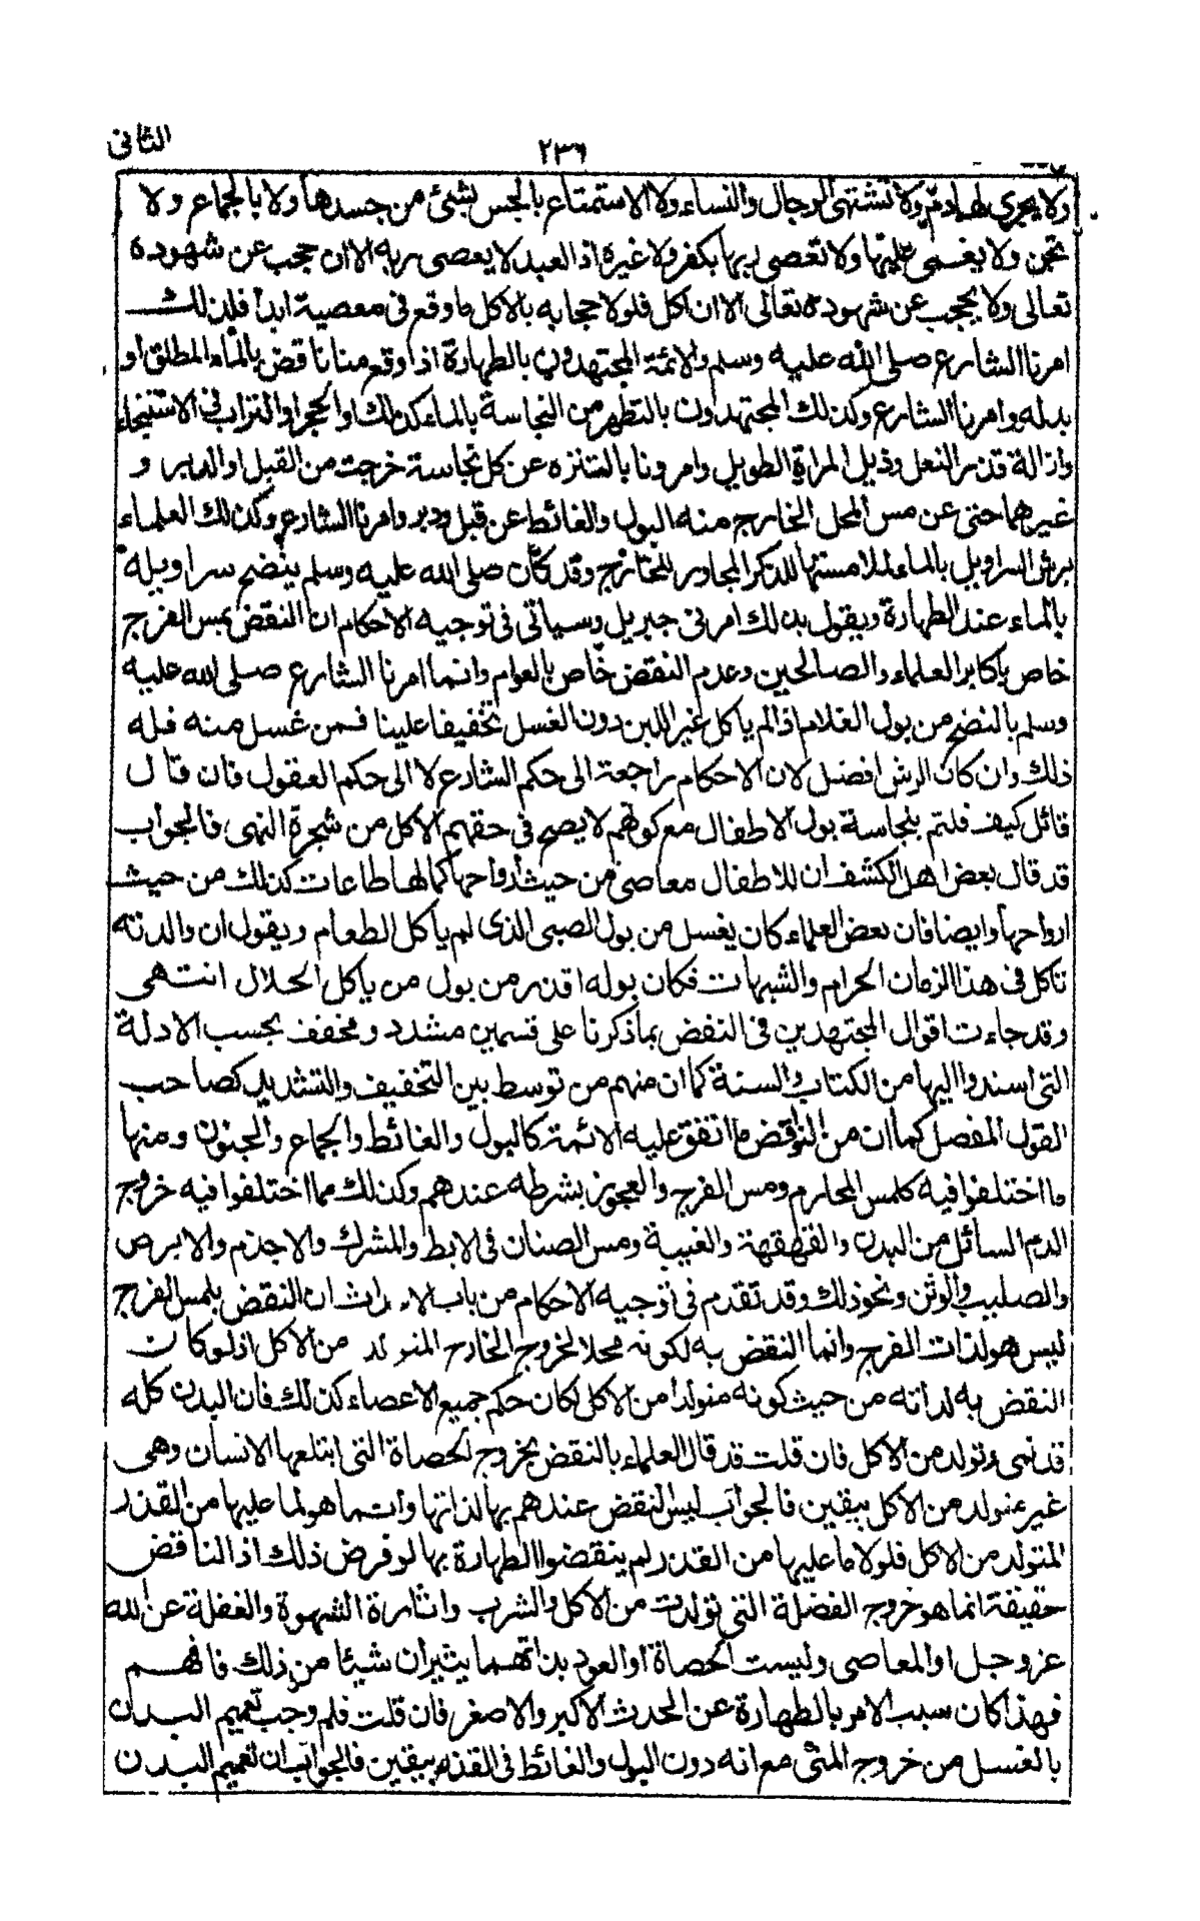 الثانى
٢٣٦
ولا يجرى لها دم ولا تشتهى الرجال والنساء ولا الاستمتاع بالجس بشئ من جسدها ولا بالجماع ولا
تجن ولا يغمى عليها ولا تعصى ربها بكفر ولا غيره اذ العبد لا يعصى ربه الا ان حجب عن شهوده
تعالى ولا يحجب عن شهوده تعالى الا ان اكل فلولا حجابه بالاكل ما وقع فى معصية ابدا فلذلك
امرنا الشارع صلى الله عليه وسلم والائمة المجتهدون بالطهارة اذا وقع منا ناقض بالماء المطلق او
بدله وامرنا الشارع وكذلك المجتهدون بالتطهر من النجاسة بالماء كذلك او الحجر او التراب فى الاستنجاء
وازالة قذر النعل وذيل المراة الطويل وامرونا بالتنزه عن كل نجاسة خرجت من القبل او الدبر و
غيرهما حتى عن مس المحل الخارج منه البول والغائط عن قبل ودبر وامرنا الشارع وكذلك العلماء
برش السراويل بالماء لملامستها للذكر المجاور للخارج وقد كان صلى الله عليه وسلم ينضح سراويله
بالماء عند الطهارة ويقول بذلك امرنى جبريل وسياتى فى توجيه الاحكام ان النقض بمس الفرج
خاص باكابر العلماء والصالحين وعدم النقض خاص بالعوام وانما امرنا الشارع صلى الله عليه
وسلم بالنضح من بول الغلام اذا لم ياكل غير اللبن دون الغسل تخفيفا علينا فمن غسل منه فله
ذلك وان كان الرش افضل لان الاحكام راجعة الى حكم الشارع لا الى حكم العقول فان قال
قائل كيف قلتم بنجاسة بول الاطفال مع كونهم لا يصح فى حقهم الاكل من شجرة النهى فالجواب
قد قال بعض اهل الكشف ان للاطفال معاصى من حيث ارواحها كما لها طاعات كذلك من حيث
ارواحها وايضا فان بعض العلماء كان يغسل من بول الصبى الذى لم ياكل الطعام ويقول ان والدته
تاكل فى هذا الزمان الحرام والشبهات فكان بوله اقذر من بول من ياكل الحلال انتهى
وقد جاءت اقوال المجتهدين فى النقض بما ذكرنا على قسمين مشدد ومخفف بحسب الادلة
التى اسندوا اليها من الكتاب والسنة كما ان منهم من توسط بين التخفيف والتشديد كصاحب
القول المفصل كما ان من النواقض ما اتفق عليه الائمة كالبول والغائط والجماع والجنون ومنها
ما اختلفوا فيه كلمس المحارم ومس الفرج والعجوز بشرطه عندهم وكذلك مما اختلفوا فيه خروج
الدم السائل من البدن والقهقهة والغيبة ومس الصنان فى الابط والمشرك والاجذم والابرص
والصليب والوثن ونحو ذلك وقد تقدم فى توجيه الاحكام من باب الاحداث ان النقض بلمس الفرج
ليس هو لذات الفرج وانما النقض به لكونه محلا لخروج الخارج المتولد من الاكل اذ لو كان
النقض به لذاته من حيث كونه متولدا من الاكل لكان حكم جميع الاعضاء كذلك فان البدن كله
قد نمى وتولد من الاكل فان قلت قد قال العلماء بالنقض بخروج الحصاة التى ابتلعها الانسان وهى
غير متولد من الاكل بيقين فالجواب ليس النقض عندهم بها لذاتها وانما هو لما عليها من القذر
المتولد من الاكل فلولا ما عليها من القذر لم ينقضوا الطهارة بها لو فرض ذلك اذ الناقض
حقيقة انما هو خروج الفضلة التى تولدت من الاكل والشرب واثارة الشهوة والغفلة عن الله
عز وجل او المعاصى وليست الحصاة او العود بذاتهما يثيران شيئا من ذلك فافهم
فهذا كان سبب الامر بالطهارة عن الحدث الاكبر والاصغر فان قلت فلم وجب تعميم البدن
بالغسل من خروج المنى مع انه دون البول والغائط فى القذر بيقين فالجواب ان تعميم البدن